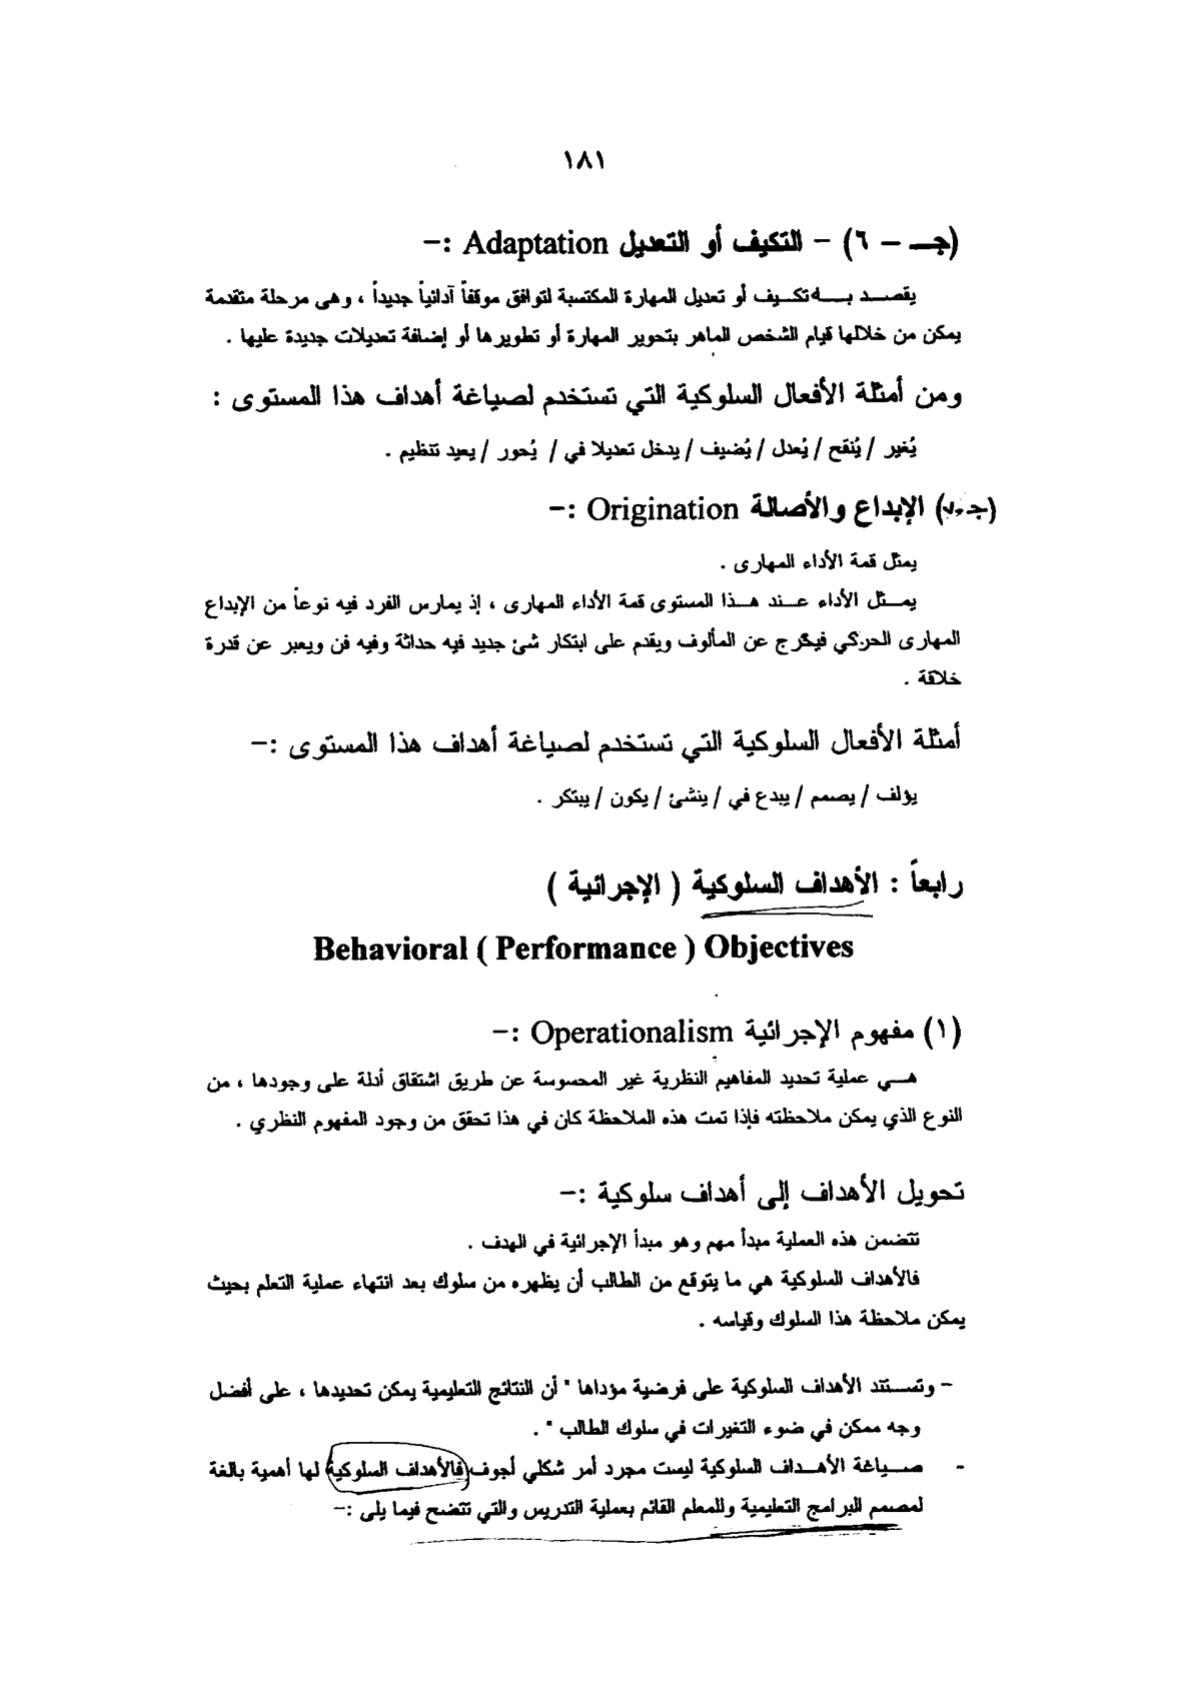 ١٨١
(جـ – ٦) – التكيف أو التعديل Adaptation :–
يقصد به تكيف أو تعديل المهارة المكتسبة لتوافق موقفاً آدائياً جديداً ، وهى مرحلة متقدمة
يمكن من خلالها قيام الشخص الماهر بتحوير المهارة أو تطويرها أو إضافة تعديلات جديدة عليها .
ومن أمثلة الأفعال السلوكية التي تستخدم لصياغة أهداف هذا المستوى :
يُغير / يُنقح / يُعدل / يُضيف / يدخل تعديلا في / يُحور / يعيد تنظيم .
(جـ-٧) الإبداع والأصالة Origination :–
يمثل قمة الأداء المهارى .
يمثل الأداء عند هذا المستوى قمة الأداء المهارى ، إذ يمارس الفرد فيه نوعاً من الإبداع
المهارى الحركي فيخرج عن المألوف ويقدم على ابتكار شئ جديد فيه حداثة وفيه فن ويعبر عن قدرة
خلاقة .
أمثلة الأفعال السلوكية التي تستخدم لصياغة أهداف هذا المستوى :–
يؤلف / يصمم / يبدع في / ينشئ / يكون / يبتكر .
رابعاً : الأهداف السلوكية ( الإجرائية )
Behavioral ( Performance ) Objectives
(١) مفهوم الإجرائية Operationalism :–
هي عملية تحديد المفاهيم النظرية غير المحسوسة عن طريق اشتقاق أدلة على وجودها ، من
النوع الذي يمكن ملاحظته فإذا تمت هذه الملاحظة كان في هذا تحقق من وجود المفهوم النظري .
تحويل الأهداف إلى أهداف سلوكية :–
تتضمن هذه العملية مبدأ مهم وهو مبدأ الإجرائية في الهدف .
فالأهداف السلوكية هي ما يتوقع من الطالب أن يظهره من سلوك بعد انتهاء عملية التعلم بحيث
يمكن ملاحظة هذا السلوك وقياسه .
– وتستند الأهداف السلوكية على فرضية مؤداها " أن النتائج التعليمية يمكن تحديدها ، على أفضل
وجه ممكن في ضوء التغيرات في سلوك الطالب " .
- صياغة الأهداف السلوكية ليست مجرد أمر شكلي أجوف فالأهداف السلوكية لها أهمية بالغة
لمصمم البرامج التعليمية وللمعلم القائم بعملية التدريس والتي تتضح فيما يلى :–